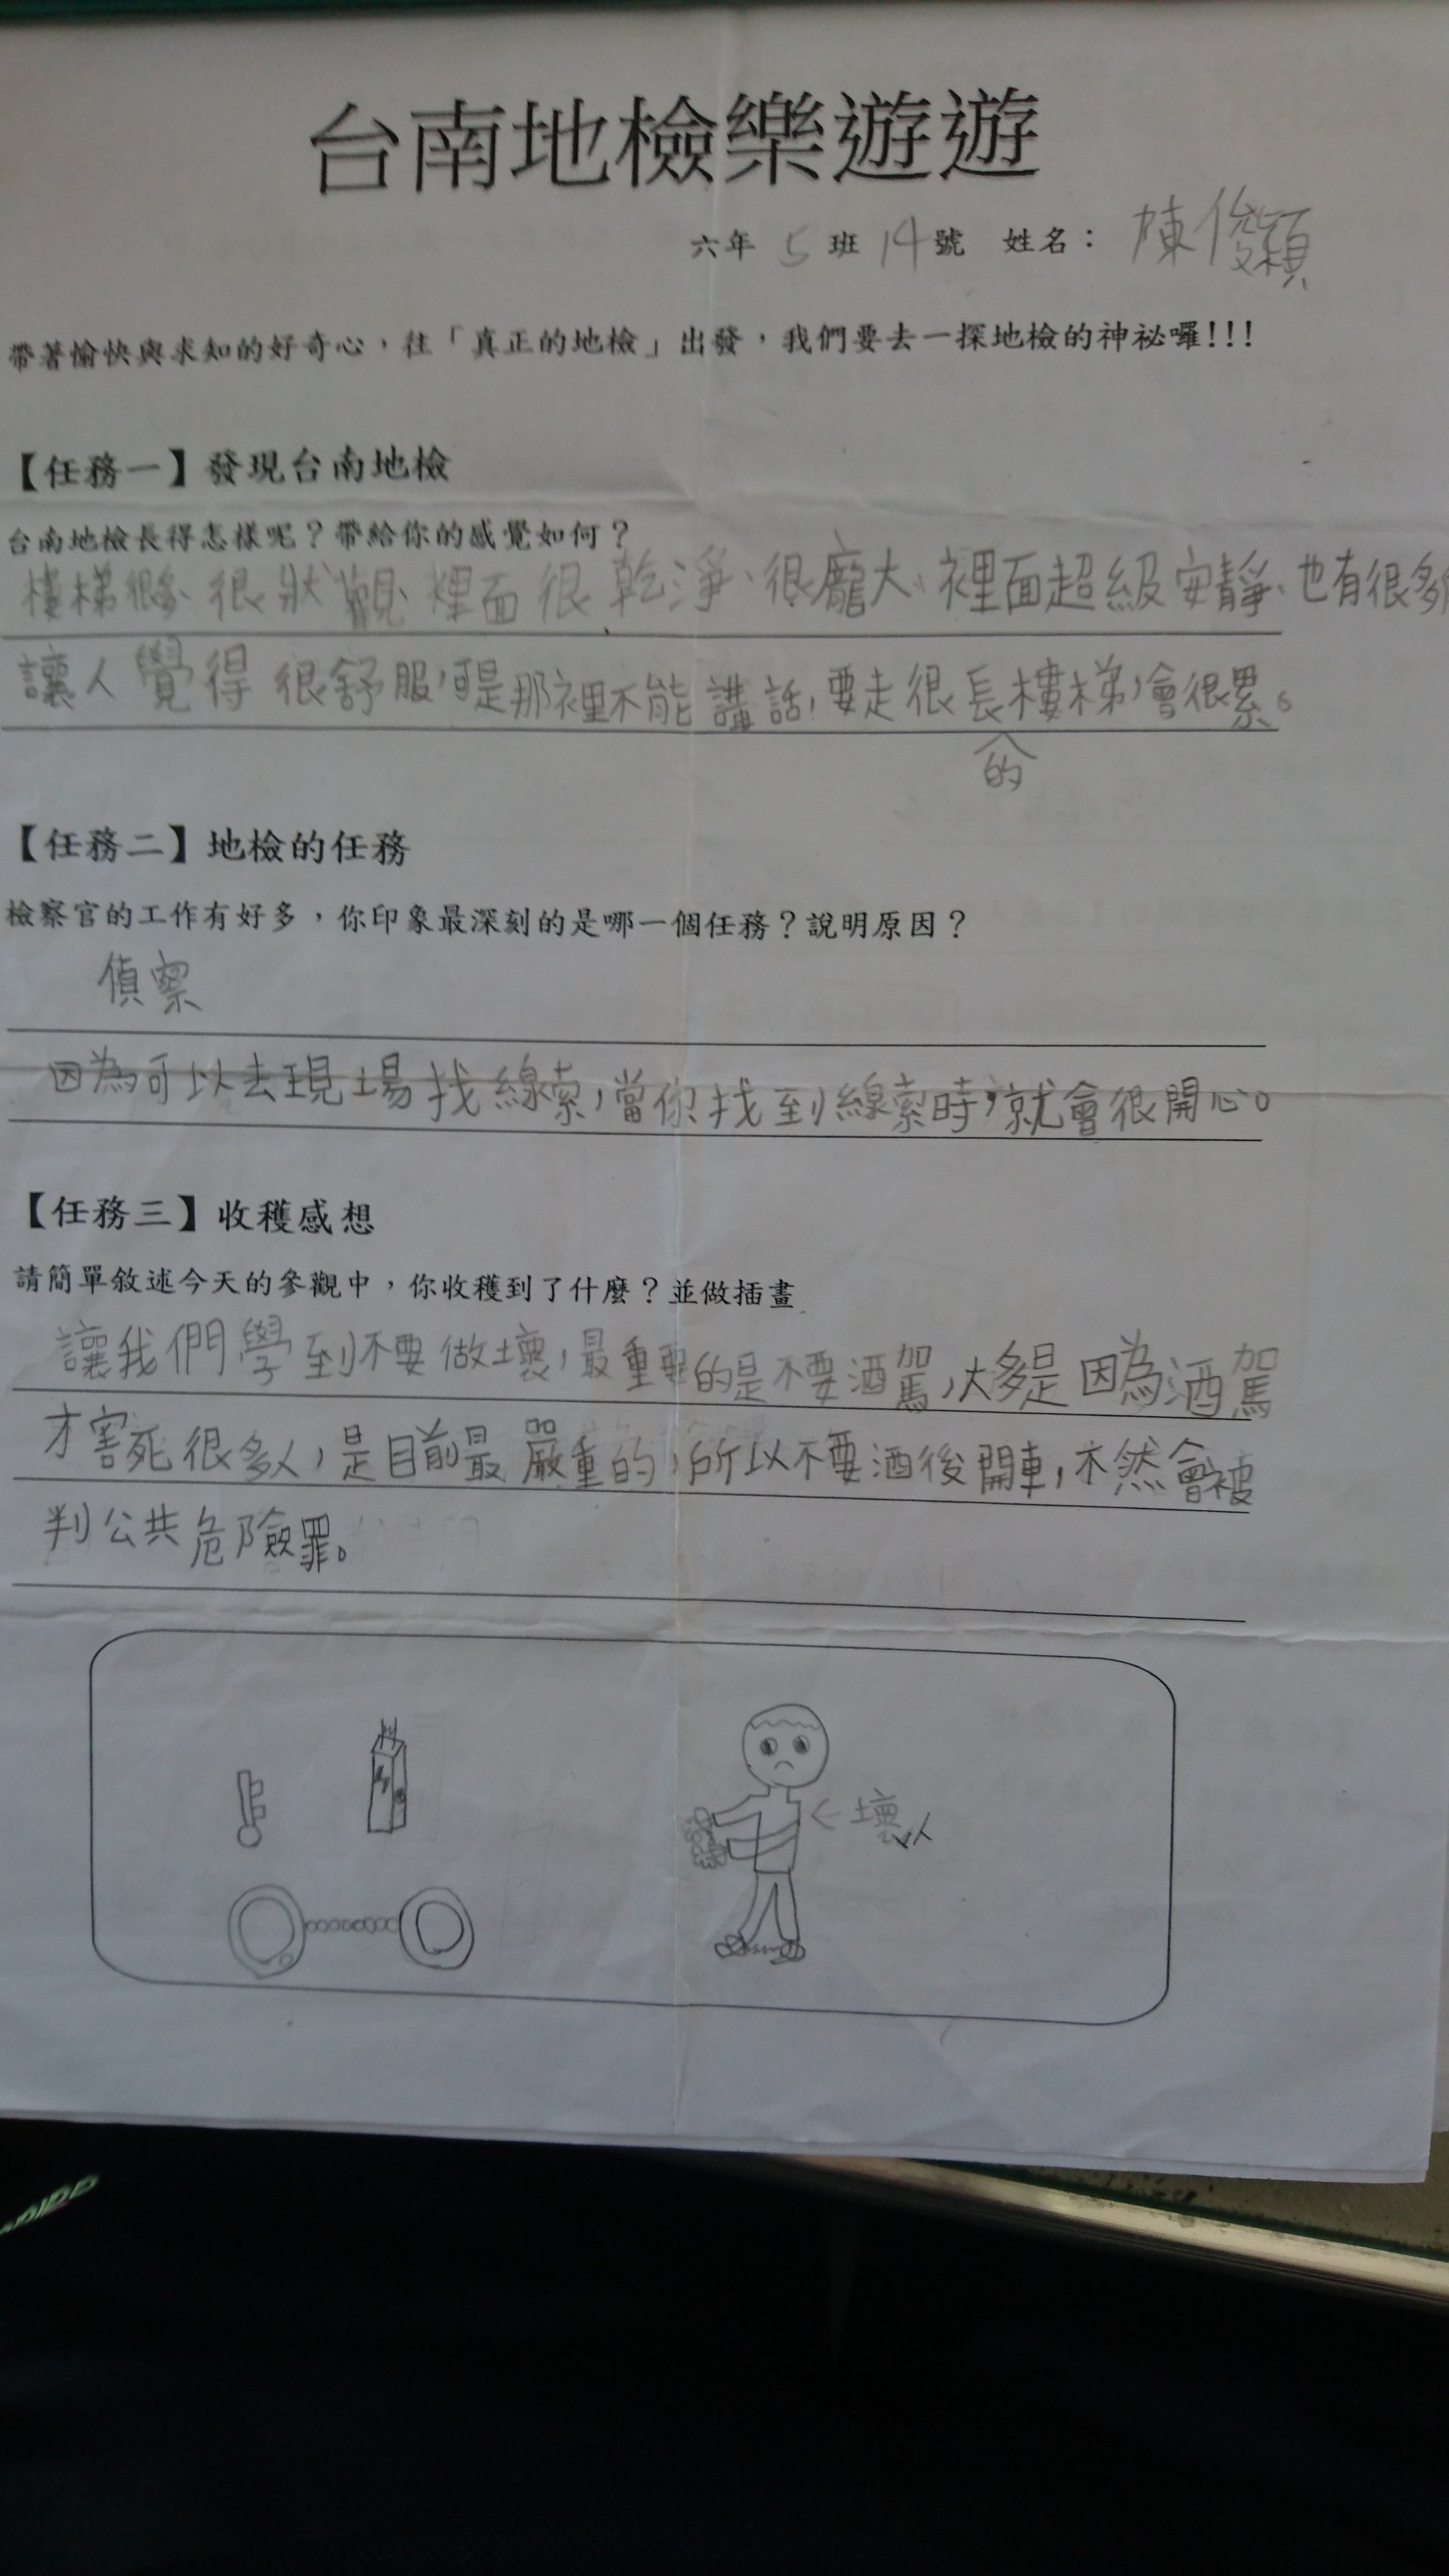 台南地檢樂遊遊
六年 5 班 14 號 姓名： 陳俊穎
帶著愉快與求知的好奇心，往「真正的地檢」出發，我們要去一探地檢的神祕囉!!!
【任務一】發現台南地檢
台南地檢長得怎樣呢？帶給你的感覺如何？
樓梯很多、很狀觀、裡面很乾淨、很龐大、裡面超級安靜、也有很多
讓人覺得很舒服，可是那裡不能講話，要走很長樓梯，會很累。
的
【任務二】地檢的任務
檢察官的工作有好多，你印象最深刻的是哪一個任務？說明原因？
偵察
因為可以去現場找線索，當你找到線索時，就會很開心。
【任務三】收穫感想
請簡單敘述今天的參觀中，你收穫到了什麼？並做插畫
讓我們學到不要做壞，最重要的是不要酒駕，大多是因為酒駕
才害死很多人，是目前最嚴重的，所以不要酒後開車，不然會被
判公共危險罪。
←壞人